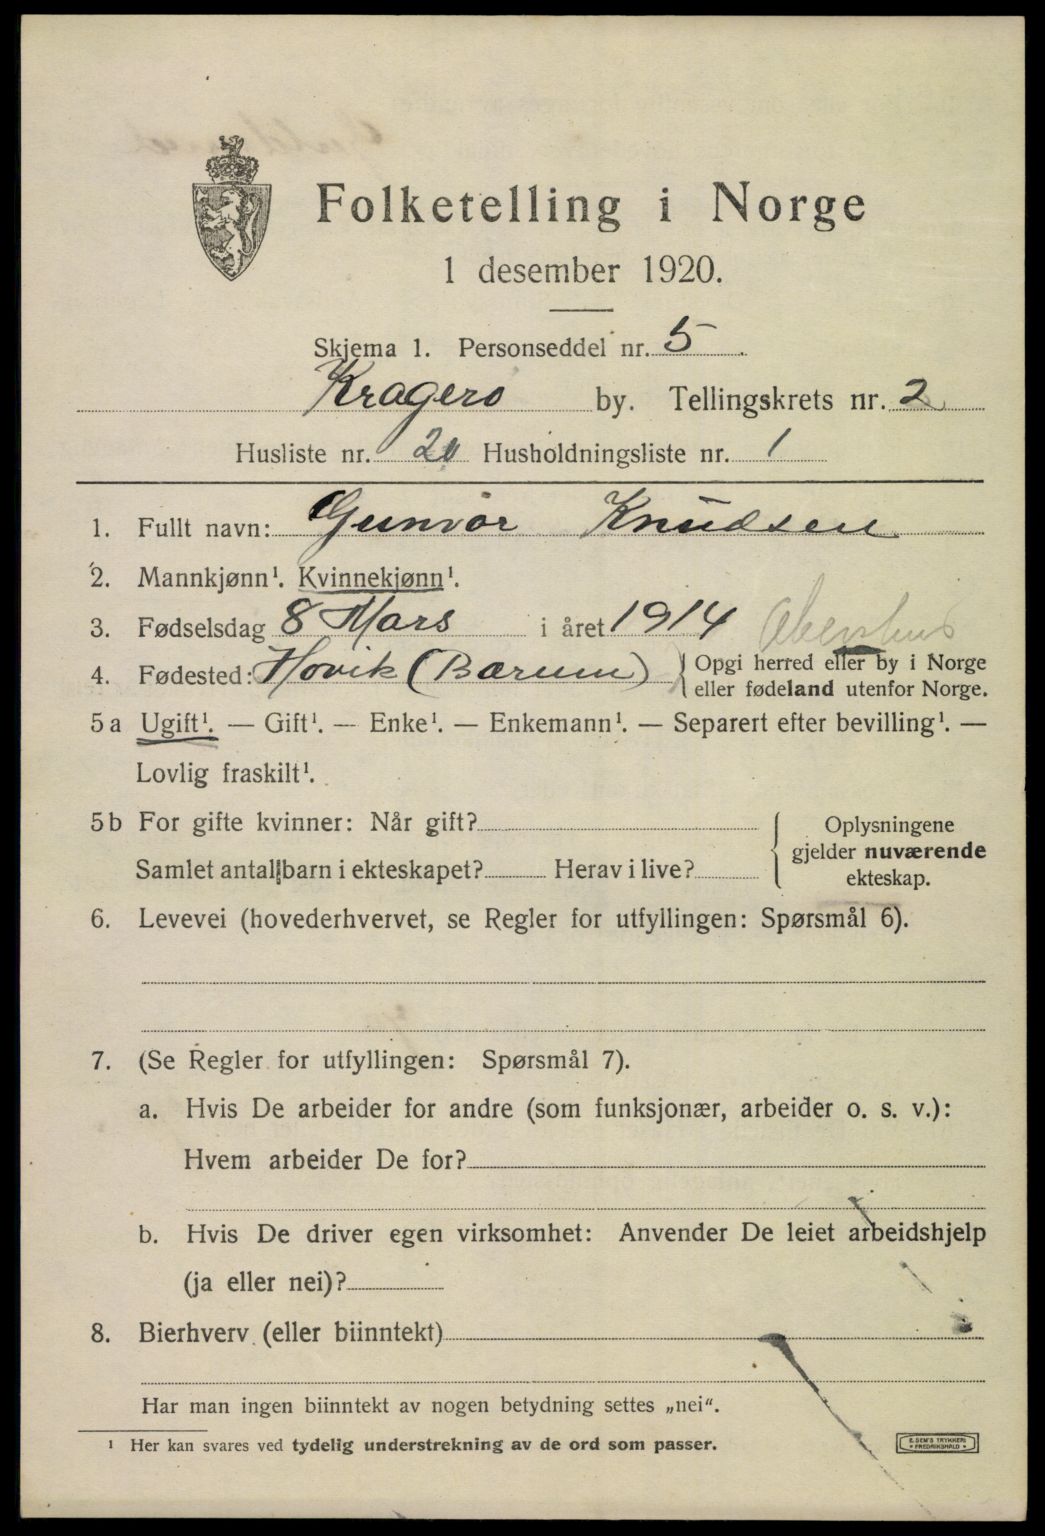 Folketelling i Norge
1 desember 1920.
Skjema 1. Personseddel nr. 5
Kragerø by. Tellingskrets nr. 2
Husliste nr. 20 Husholdningsliste nr. 1
1. Fullt navn: Gunvor Knudsen
2. Mannkjønn¹. Kvinnekjønn¹.
3. Fødselsdag 8 Mars i året 1914 Akershus
4. Fødested: Høvik (Bærum) } Opgi herred eller by i Norge
eller fødeland utenfor Norge.
5a Ugift¹. — Gift¹. — Enke¹. — Enkemann¹. — Separert efter bevilling¹. —
Lovlig fraskilt¹.
5b For gifte kvinner: Når gift?
Samlet antal barn i ekteskapet? Herav i live?
{ Oplysningene
gjelder nuværende
ekteskap.
6. Levevei (hovederhvervet, se Regler for utfyllingen: Spørsmål 6).
7. (Se Regler for utfyllingen: Spørsmål 7).
a. Hvis De arbeider for andre (som funksjonær, arbeider o. s. v.):
Hvem arbeider De for?
b. Hvis De driver egen virksomhet: Anvender De leiet arbeidshjelp
(ja eller nei)?
8. Bierhverv (eller biinntekt)
Har man ingen biinntekt av nogen betydning settes „nei".
¹ Her kan svares ved tydelig understrekning av de ord som passer.
E. SEM'S TRYKKERI
FREDRIKSHALD